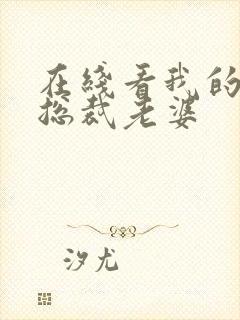 在线看我的
总裁老婆
汐尤